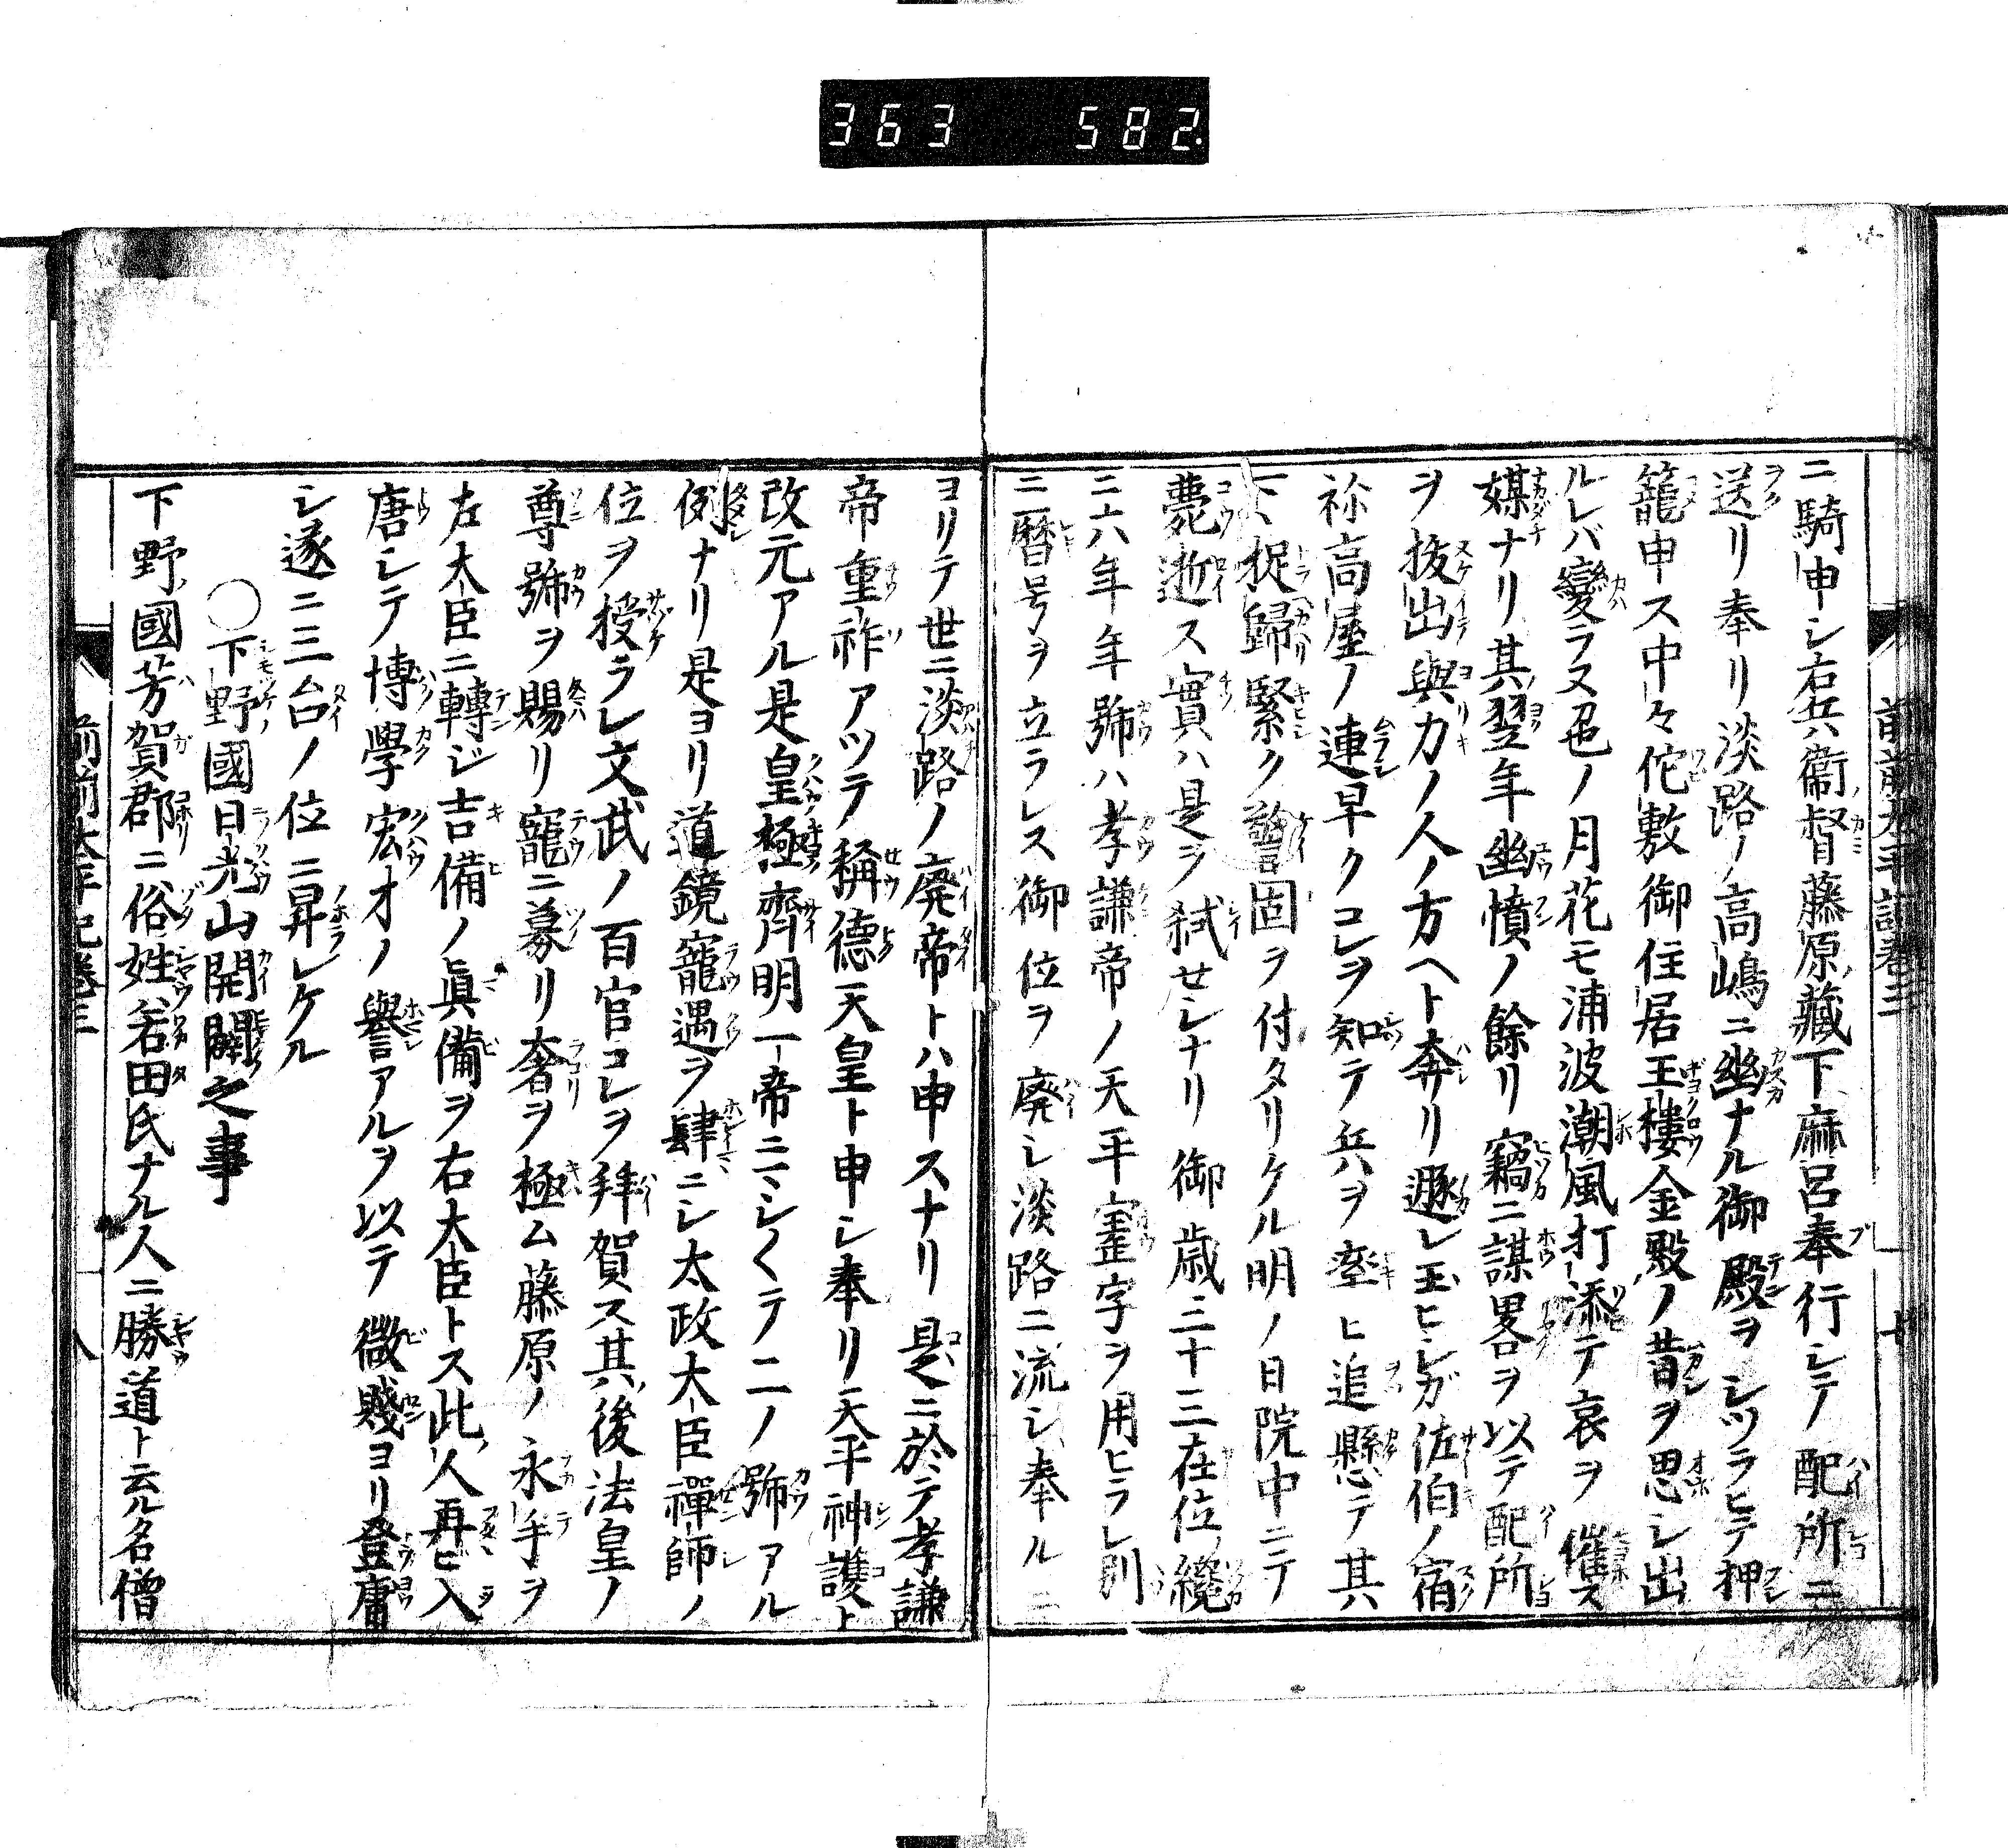 363 582.
前前太平記卷三
ニ騎申シ右兵衞督藤原藏下麻呂奉行シテ配所ニ
送リ奉リ淡路ノ高嶋ニ幽ナル御殿ヲシツラヒテ押
籠申ス中々佗敷御住居玉樓金殿ノ昔ヲ思シ出
ルレバ變ラヌ色ノ月花モ浦波潮風打添テ哀ヲ催ス
媒ナリ其翌年幽憤ノ餘リ竊ニ謀畧ヲ以テ配所
ヲ拔出與力ノ人ノ方ヘト奔リ遯レ玉ヒシガ佐伯ノ宿
祢高屋ノ連早クコレヲ知テ兵ヲ率ヒ追懸テ其
下捉歸緊ク警固ヲ付タリケル明ノ日院中ニテ
薨逝ス實ハ是ヲ弑セシナリ御歳三十三在位纔
ニ六年年號ハ孝謙帝ノ天平寳字ヲ用ヒラレ別
ニ暦号ヲ立ラレス御位ヲ廃シ淡路ニ流シ奉ルニ
ヨリテ世ニ淡路ノ廃帝トハ申スナリ是ニ於テ孝謙
帝重祚アツテ稱德天皇ト申シ奉リ天平神護ト
改元アル是皇極齊明一帝ニマシ〱テ二ノ號アル
例ナリ是ヨリ道鏡寵遇ヲ肆ニシ太政大臣禪師ノ
位ヲ授ラレ文武ノ百官コレヲ拜賀ス其後法皇ノ
尊號ヲ賜リ寵ニ募リ奢ヲ極ム藤原ノ永手ヲ
左大臣ニ轉ジ吉備ノ眞備ヲ右大臣トス此人再ビ入
唐シテ博學宏才ノ譽アルヲ以テ微賤ヨリ登庸
シ遂ニ三台ノ位ニ昇レケル
〇下野國日光山開闢之事
下野國芳賀郡ニ俗姓若田氏ナル人ニ勝道ト云ル名僧
前前太平記卷三